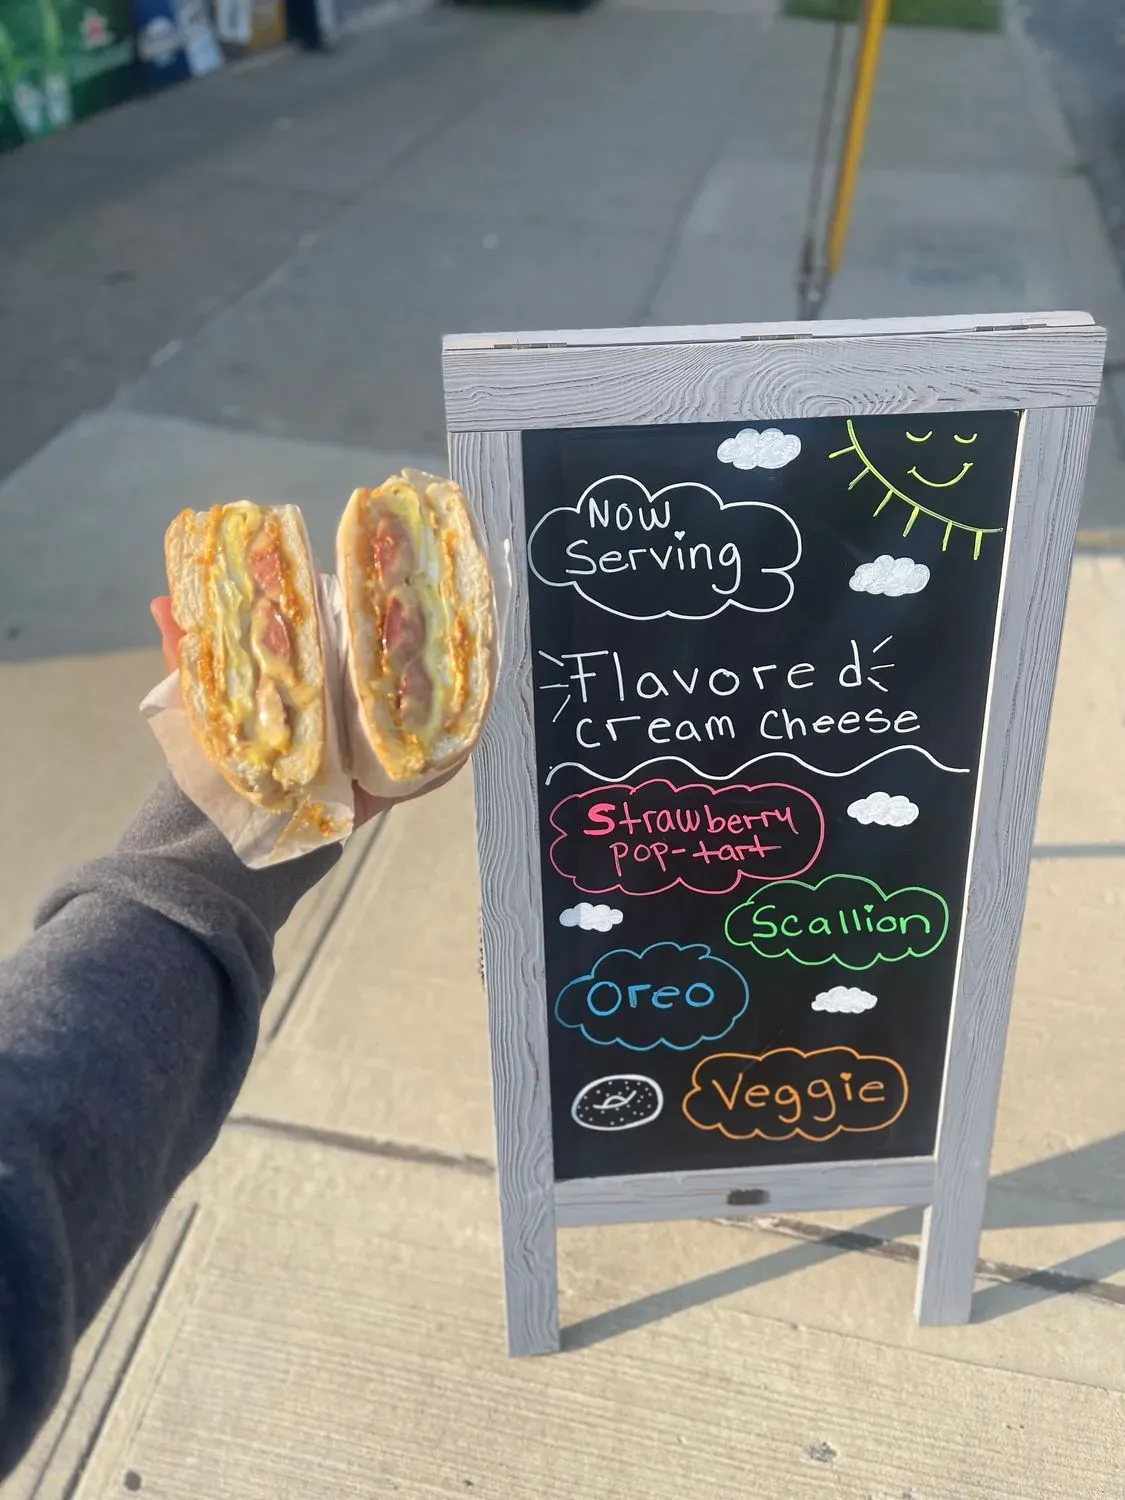 Now
Serving
Flavored
cream cheese
Strawberry
pop-tart
Scallion
Oreo
Veggie